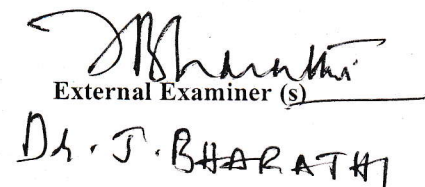 JBharathi
External Examiner (s)
Dr. J. BHARATHI